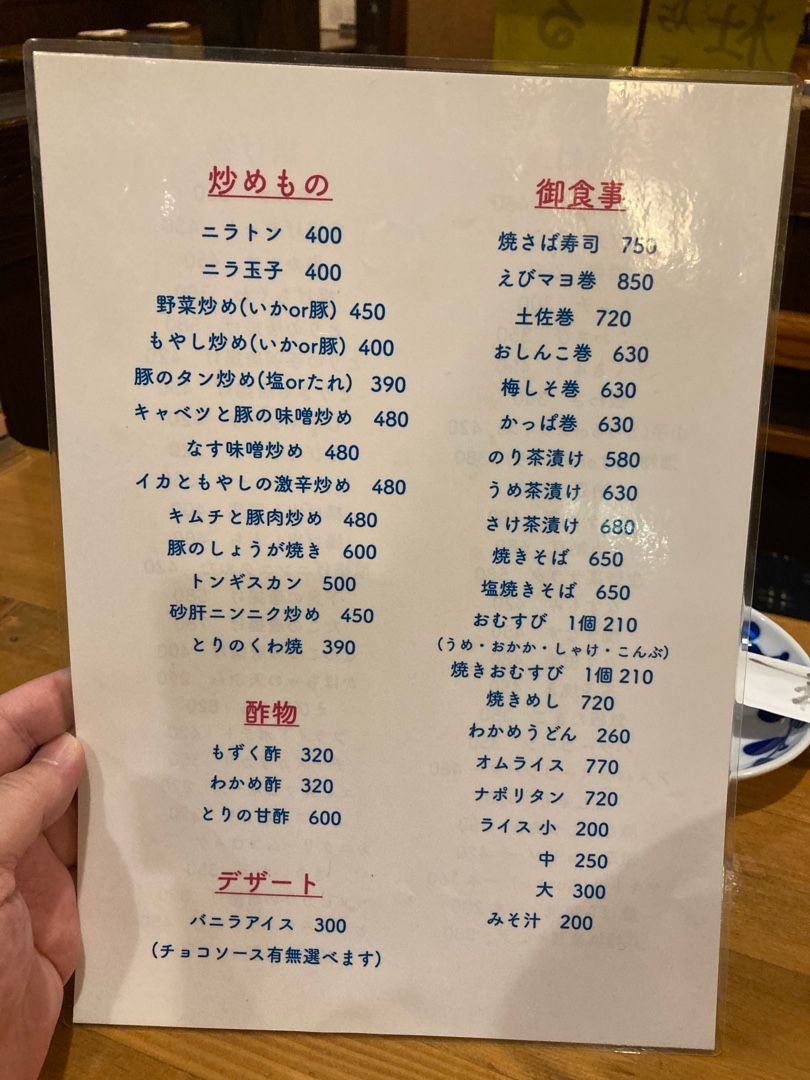 炒めもの
ニラトン 400
ニラ玉子 400
野菜炒め(いかor豚) 450
もやし炒め(いかor豚) 400
豚のタン炒め(塩orたれ) 390
キャベツと豚の味噌炒め 480
なす味噌炒め 480
イカともやしの激辛炒め 480
キムチと豚肉炒め 480
豚のしょうが焼き 600
トンギスカン 500
砂肝ニンニク炒め 450
とりのくわ焼 390
酢物
もずく酢 320
わかめ酢 320
とりの甘酢 600
デザート
バニラアイス 300
(チョコソース有無選べます)
御食事
焼さば寿司 750
えびマヨ巻 850
土佐巻 720
おしんこ巻 630
梅しそ巻 630
かっぱ巻 630
のり茶漬け 580
うめ茶漬け 630
さけ茶漬け 680
焼きそば 650
塩焼きそば 650
おむすび 1個 210
(うめ・おかか・しゃけ・こんぶ)
焼きおむすび 1個 210
焼きめし 720
わかめうどん 260
オムライス 770
ナポリタン 720
ライス 小 200
中 250
大 300
みそ汁 200